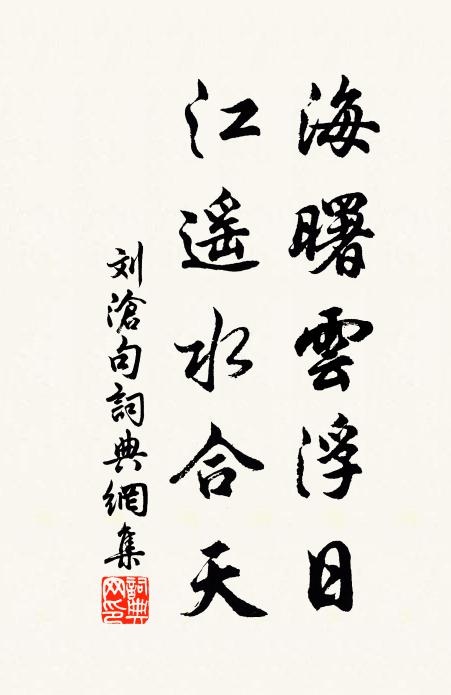 海曙雲浮日
江遥水合天
刘滄句詞典網集
詞典网印